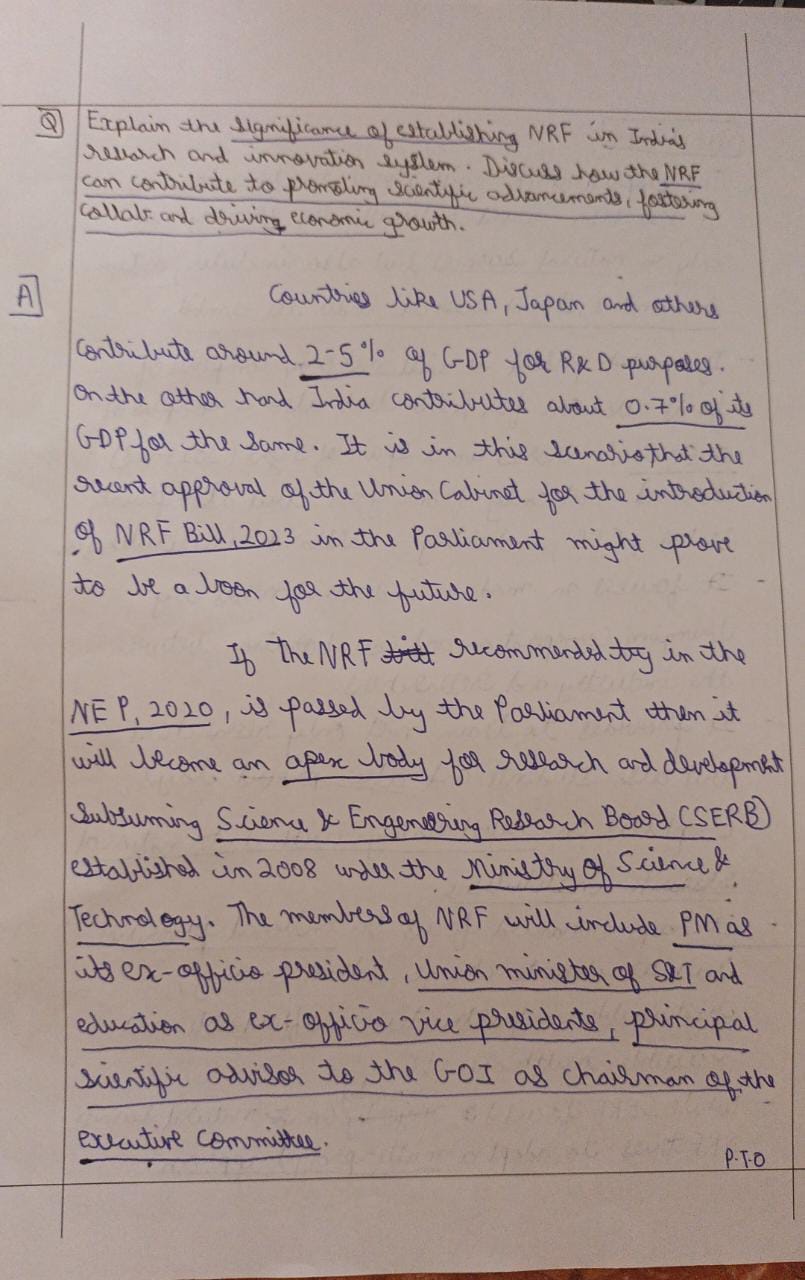 Q Explain the significance of establishing NRF in India's
research and innovation system. Discuss how the NRF
can contribute to promoting scientific advancements, fostering
collab. and driving economic growth.
A Countries like USA, Japan and others
contribute around 2-5% of GDP for R&D purposes.
On the other hand India contributes about 0.7% of its
GDP for the same. It is in this scenario that the
recent approval of the Union Cabinet for the introduction
of NRF Bill, 2023 in the Parliament might prove
to be a boon for the future.
If the NRF bill recommended by in the
NEP, 2020, is passed by the Parliament then it
will become an apex body for research and development
subsuming Science & Engeneering Research Board (SERB)
established in 2008 under the Ministry of Science &
Technology. The members of NRF will include PM as
its ex-officio president, Union minister of S&T and
education as ex-officio vice presidents, principal
scientific advisor to the GOI as chairman of the
executive committee.
P.T.O